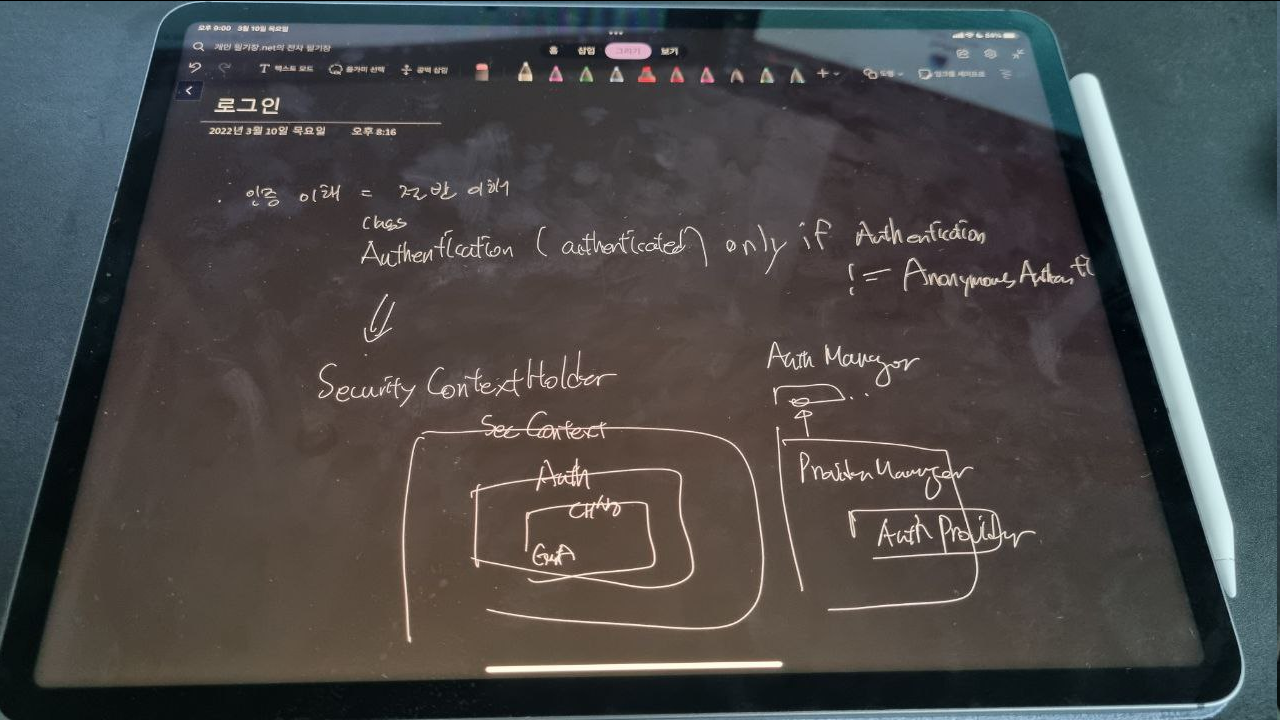 오후 9:00 3월 10일 목요일
개인 필기장.net의 전자 필기장
홈 삽입 그리기 보기
텍스트 모드 올가미 선택 공백 삽입
도형
로그인
2022년 3월 10일 목요일 오후 8:16
. 인증 이해 = 절반 이해
class
Authentication (authenticated) only if Authentication
!= Anonymous Authenti
Security ContextHolder
Auth Manager
Sec Context
Provider Manager
Auth
Auth Provider
GrntA